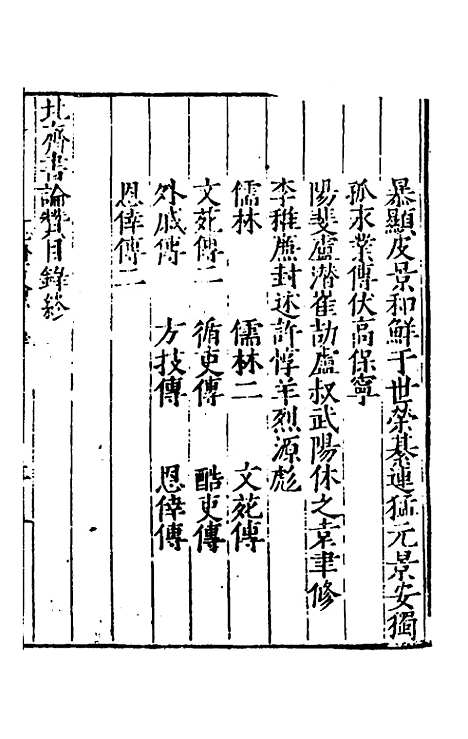 暴顯皮景和鮮于世榮綦連猛元景安獨
孤永業傳伏高保寧
陽斐盧潛崔劼盧叔武陽休之袁聿修
李稚廉封述許惇羊烈源彪
儒林 儒林二 文苑傳
文苑傳二 循吏傳 酷吏傳
外戚傳 方技傳 恩倖傳
恩倖傳二
北齊書論贊目錄終